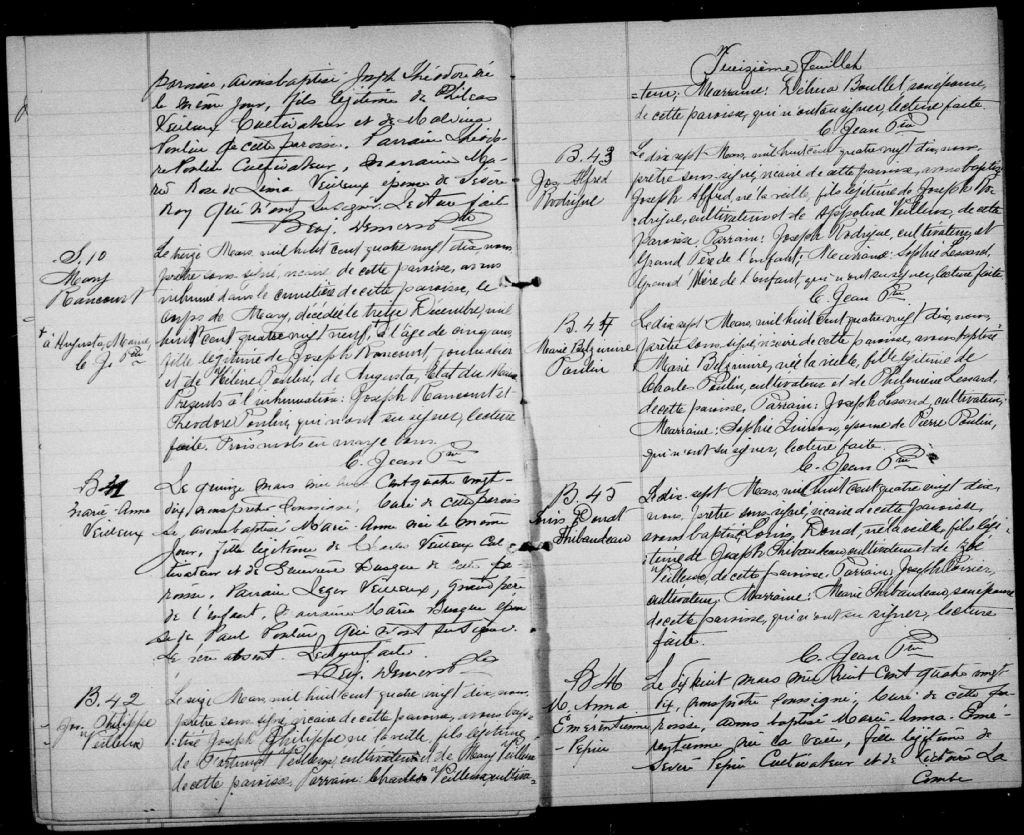 paroisse, avons baptisé Joseph Théodore né
le même jour, fils légitime de Philéas
Veilleux Cultivateur et de Malvina
Poulin de cette paroisse. Parrain Théodo-
re Poulin Cultivateur, marraine Ma-
rie Rose de Lima Veilleux épouse de Sévère
Roy qui n'ont su signer. Lecture faite
S. 10
Mary
Rancourt
+ à Augusta, Maine,
C. J. Ptre
Le treize Mars, mil huit cent quatre vingt dix, nous
prêtre sous-signé, vicaire de cette paroisse, avons
inhumé dans le cimetière de cette paroisse, le
corps de Mary, décédée le treize Décembre, mil
huit cent quatre vingt neuf, à l'âge de cinq ans,
fille légitime de Joseph Rancourt journalier
et de Hélène Poulin, de Augusta, Etat du Maine
Présents à l'inhumation: Joseph Rancourt et
Théodore Poulin, qui n'ont su signer, lecture
faite. Trois mots en marge bons.
C. Jean Ptre
B 41
Marie-Anne
Veilleux
Le quinze mars mil huit Cent quatre vingt-
dix, nous prêtre soussigné, Curé de cette parois
se, avons baptisé Marie-Anne née le même
jour, fille légitime de Veilleux Cul
tivateur et de Busque de cette pa-
roisse. Parrain Léger Veilleux, grand père
de l'enfant, Marraine Marie Busque épou
se de Paul Poulin, qui n'ont su signer.
Le père absent. Lecture faite.
B. 42
Jos. Philippe
Veilleux
Le seize Mars, mil huit cent quatre vingt dix, nous
prêtre sous-signé, vicaire de cette paroisse, avons bap-
tisé Joseph Philippe, né la veille, fils légitime
de Veilleux, cultivateur et de Mary Veilleux
de cette paroisse, Parrain: Charles Veilleux cultiva-
Treizième feuillet
=teur; Marraine: Délina Boullet son épouse,
de cette paroisse, qui n'ont su signer, lecture faite.
C. Jean Ptre
B. 43
Jos. Alfred
Rodrigue
Le dix sept Mars, mil huit cent quatre vingt dix, nous,
prêtre sous-signé, vicaire de cette paroisse, avons baptisé
Joseph Alfred, né la veille, fils légitime de Joseph Ro-
drigue, cultivateur et de Appoline Veilleux, de cette
paroisse, Parrain: Joseph Rodrigue, cultivateur, et
Grand Père de l'enfant; Marraine: Sophie Lessard,
Grand'Mère de l'enfant, qui n'ont su signer, lecture faite
C. Jean Ptre
B. 44
Marie
Poulin
Le dix sept Mars, mil huit cent quatre vingt dix, nous,
prêtre sous-signé, vicaire de cette paroisse, avons baptisé
Marie née la veille, fille légitime de
Charles Poulin, cultivateur et de Philomène Lessard,
de cette paroisse, Parrain: Joseph Lessard, cultivateur;
Marraine: Sophie épouse de Pierre Poulin,
qui n'ont su signer, lecture faite.
C. Jean Ptre
B. 45
Louis Donat
Thibaudeau
Le dix-sept Mars, mil huit cent quatre vingt dix,
nous, prêtre sous-signé, vicaire de cette paroisse,
avons baptisé Louis Donat, né la veille, fils légi-
time de Joseph Thibaudeau, cultivateur et de Zoé
Veilleux, de cette paroisse. Parrain, Joseph Poirier,
cultivateur; Marraine: Marie Thibaudeau, son épouse
de cette paroisse, qui n'ont su signer, lecture
faite.
C. Jean Ptre
B 46
M. Anna
Emérentienne
Pépin
Le dix huit mars mil huit Cent quatre vingt
dix, nous prêtre soussigné, Curé de cette pa-
roisse, avons baptisé Marie-Anna-Emé-
rentienne née la veille, fille légitime de
Sévère Pépin Cultivateur et de Victoire La
Combe